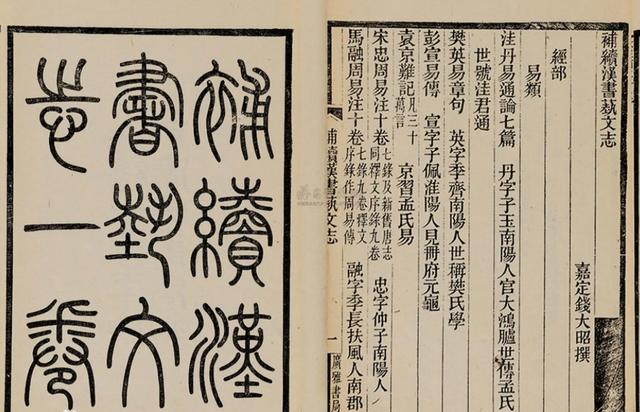 補續漢書蓺文志
嘉定錢大昭撰
經部
易類
洼丹易通論七篇 丹字子玉南陽人官大鴻臚世傳孟氏
世號洼君通
樊英易章句 英字季齊南陽人世稱樊氏學
彭宣易傳 宣字子佩淮陽人見冊府元龜
袁京難記凡三十萬言 京習孟氏易
宋忠周易注十卷七錄及新舊唐志同釋文序錄九卷 忠字仲子南陽人
馬融周易注十卷七錄九卷釋文序錄作周易傳 融字季長扶風人南郡
補續漢書蓺文志 一 廣雅書局
補續漢
書蓺文
志一卷